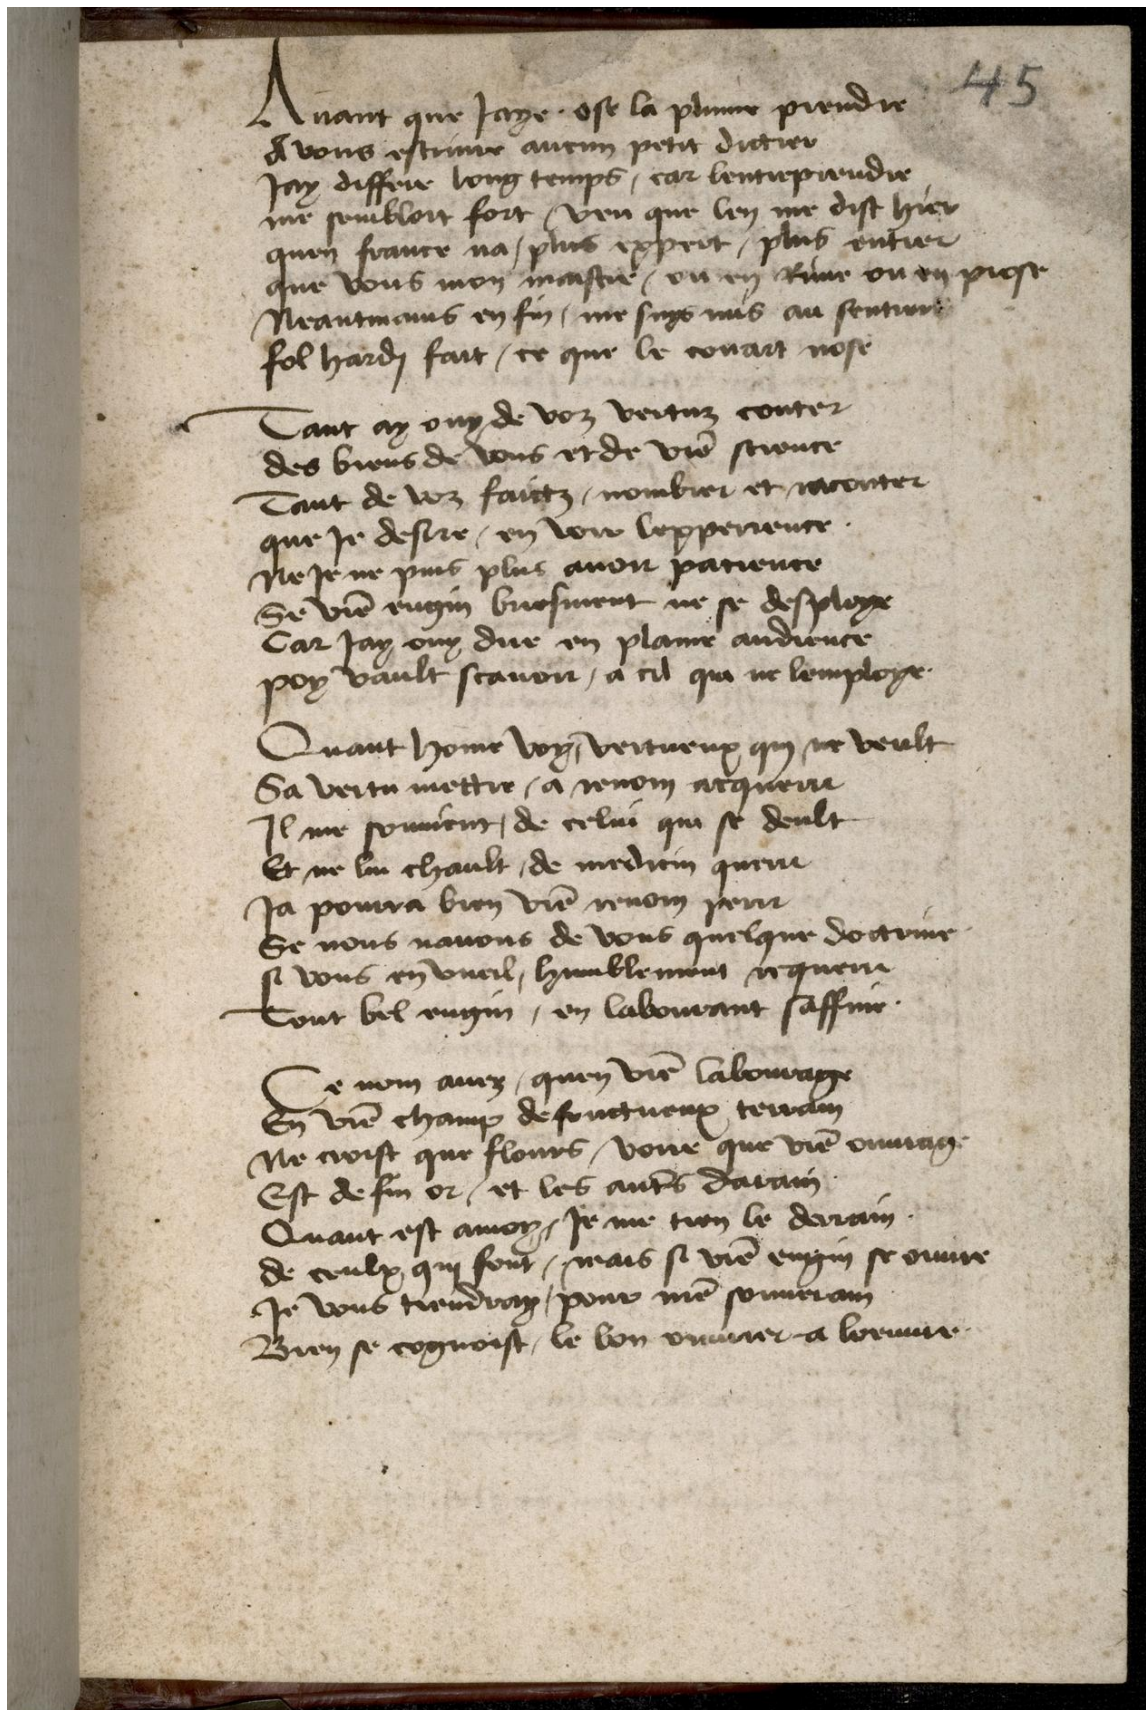 45
Auant que Jaye . ose la plume prendre
A vous escriure aucun petit dictier
Jay differe long temps / car lentreprendre
me sembloit fort / veu que len me dist hier
quen france na / plus expert / plus entier
que vous mon maistre / ou en Rime ou en prose
Neantmains en fin / me suys mis au sentier
fol hardj fait / ce que le couart nose
Tant ay ouy de voz vertuz conter
des biens de vous et de vr̃e science
Tant de voz faictz / nombrer et raconter
que Je desire / en veoir lexperience .
Ne Je ne puis plus auoir pacience
Se vr̃e engin briefment ne se desploye
Car Jay ouy dire en plaine audience
poy vault scauoir / a cil qui ne lemploye .
Quant home voy / vertueux qui ne veult
Sa vertu mettre / a renom acquerir
Il me souuient / de celui qui se deult
Et ne lui chault / de medicin querir
Ja pourra bien vr̃e renom perir
Se nous nauons de vous quelque doctrine
si vous en vueil / humblement requerir
Tout bel engin / en labourant saffine .
Ce nom auez / quen vr̃e labourage
En vr̃e champ de fructueux terrain
Ne croist que flours / voire que vr̃e ouurage
Est de fin or / et les autr̃s darain .
Quant est amoy / Je me tien le derrain .
de ceulx qui font / mais si vr̃e engin se ouure
Je vous tiendray / pour mr̃e souuerain
Bien se cognoist / le bon ouurier a loeuure .